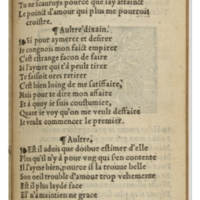 Tu ne scaurois pource que iay attainct
Le poinct d'amour qui plus me pourroit
croistre.
¶ Aultre dixain.
Si pour aymerer et desirer
Je congnois mon faict empirer
C'est estrange facon de faire
Si i'ayme qui s'a peult tirer
Te faisoit ores retirer
C'est bien loing de me satiffaire,
Puis pour te dire mon affaire
Et a quoy ie suis coustumier,
Quant ie voy qu'on me veult deffaire
Je veulx commencer le premier.
¶ Aultre,
Est il aduis que doibue estimer d'elle
Plus qu'il n'y a pour vng qui s'en contente
Il ayme bien, pource il la trouue belle
Ou oeil trouble d'amour trop vehemente
Est il plus layde face
El' n'a maintien ne grace